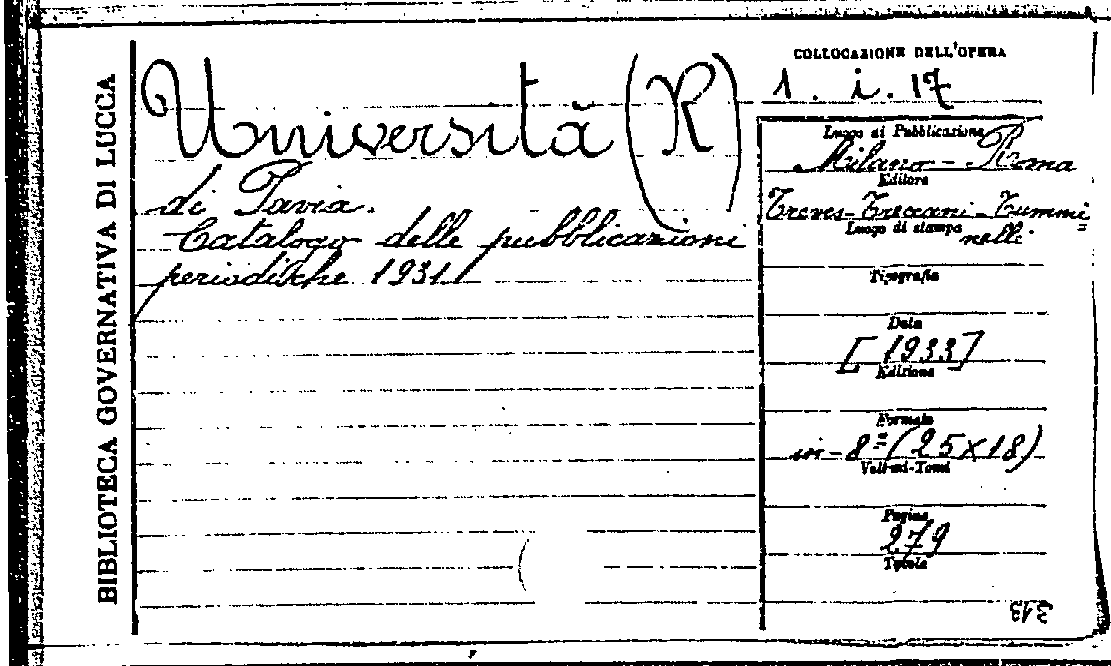 BIBLIOTECA GOVERNATIVA DI LUCCA
Università (R)
di Pavia.
Catalogo delle pubblicazioni
periodiche 1931
COLLOCAZIONE DELL'OPERA
1. i. 17
Luogo di Pubblicazione
Milano - Roma
Editore
Treves-Treccani-Tummi=
nelli
Luogo di stampa
Tipografia
Data
[1933]
Edizione
Formato
in-8º (25x18)
Volumi-Tomi
Pagine
279
Tavole
313